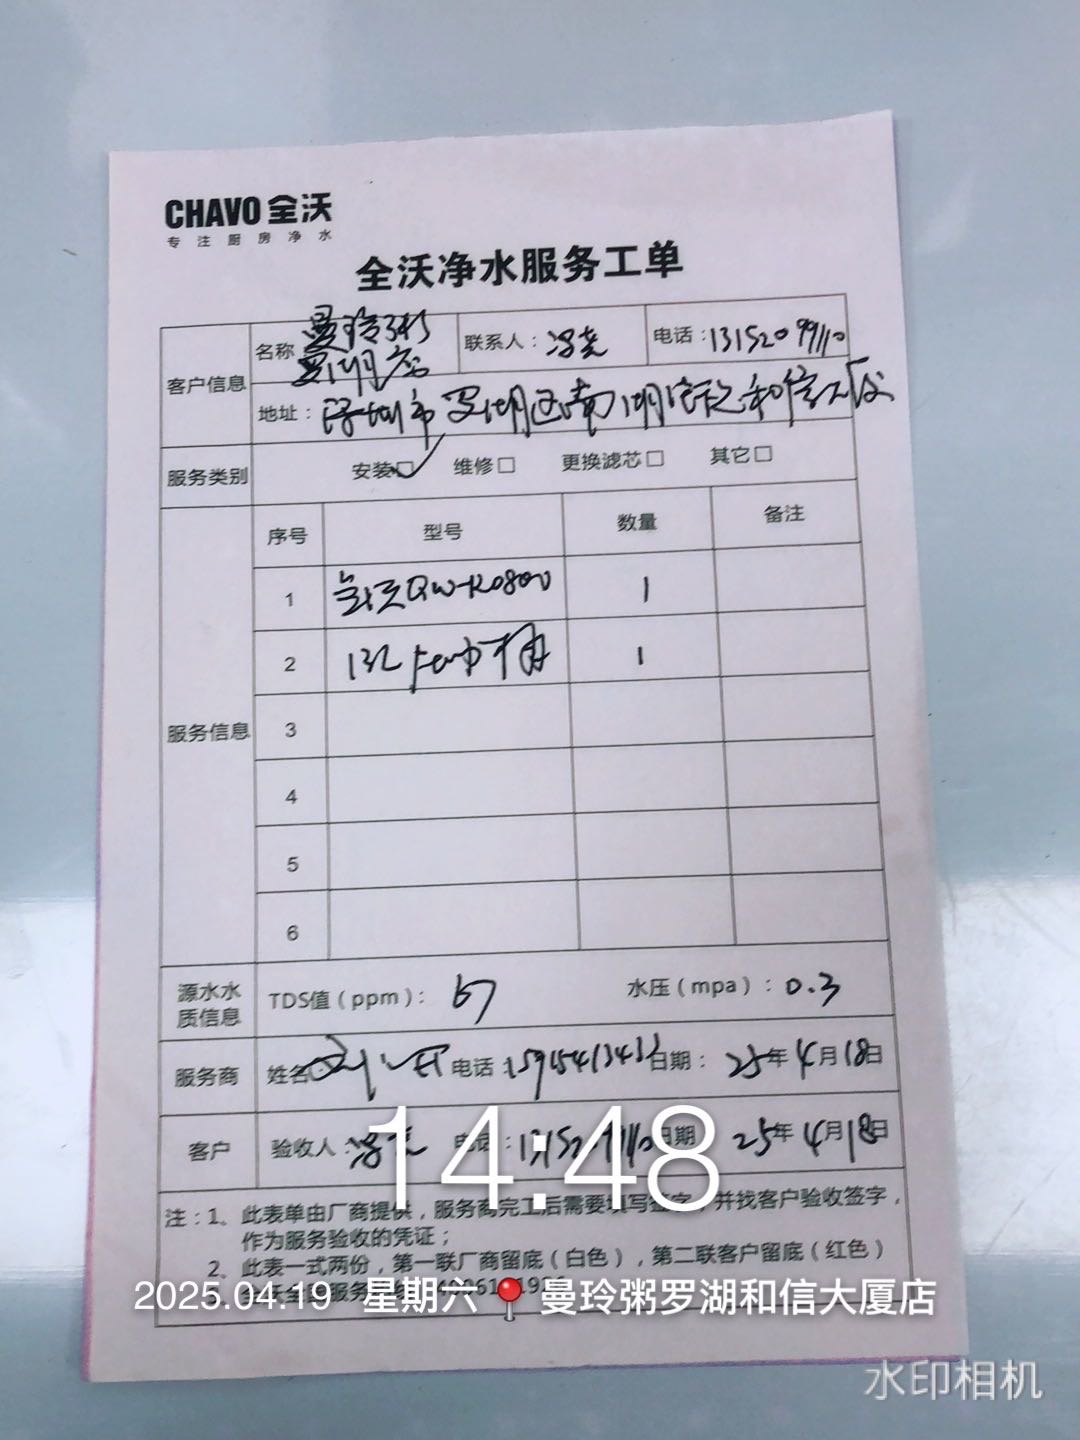 CHAVO 全沃
专注厨房净水
全沃净水服务工单
客户信息
名称 曼玲粥
罗湖店
联系人：冯尧
电话：13152099110
地址：深圳市罗湖区南湖街道和信大厦
服务类别
安装☑ 维修□ 更换滤芯□ 其它□
服务信息
序号 型号 数量 备注
1 全沃QW-RO800 1
2 132 1
3
4
5
6
源水水
质信息
TDS值（ppm）：67 水压（mpa）：0.3
服务商 姓名 电话： 日期：25年4月18日
客户 验收人：冯尧 电话：13152099110 日期 25年4月18日
14:48
注：1、此表单由厂商提供，服务商完工后需要填写签字，并找客户验收签字，
作为服务验收的凭证；
2、此表一式两份，第一联厂商留底（白色），第二联客户留底（红色）
2025.04.19 星期六 曼玲粥罗湖和信大厦店
水印相机